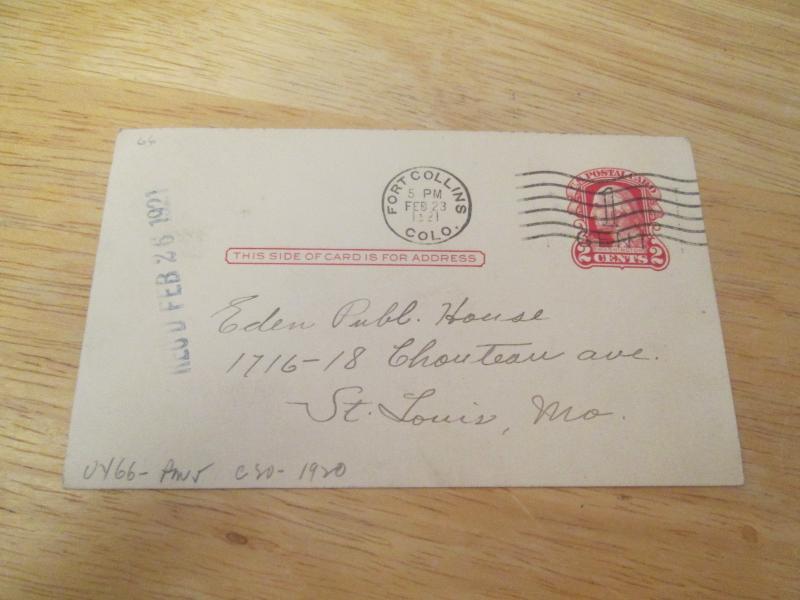 66
FORT COLLINS
5 PM
FEB 23
1921
COLO.
U.S. POSTAL CARD
1
CENT
WASHINGTON
2 CENTS 2
THIS SIDE OF CARD IS FOR ADDRESS
REC'D FEB 26 1921
Eden Publ. House
1716-18 Chouteau ave.
St. Louis, Mo.
UY66- C20- 1920